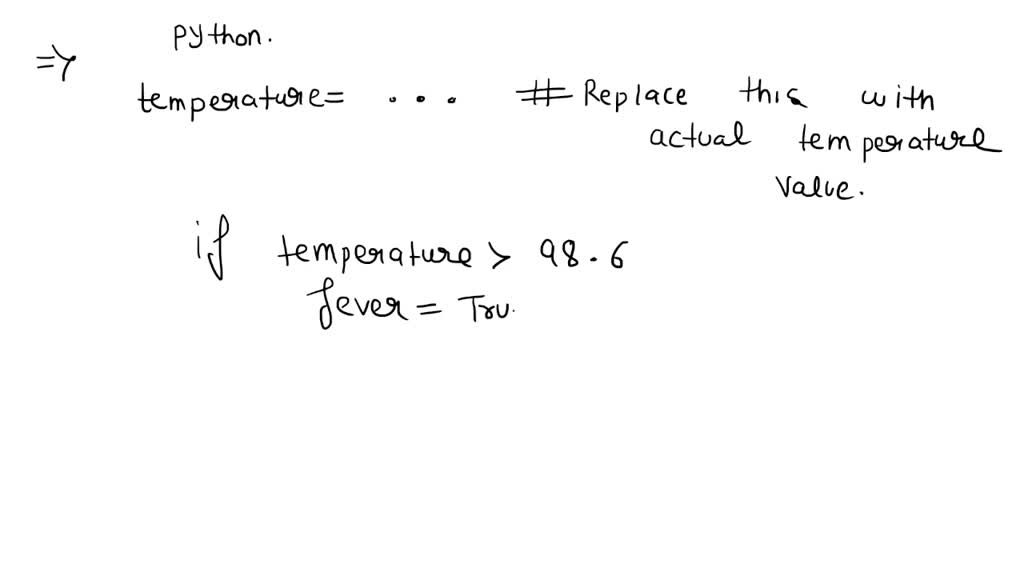 => Python.
temperature= ... # Replace this with
actual temperature
value.
if temperature > 98.6
fever = Tru